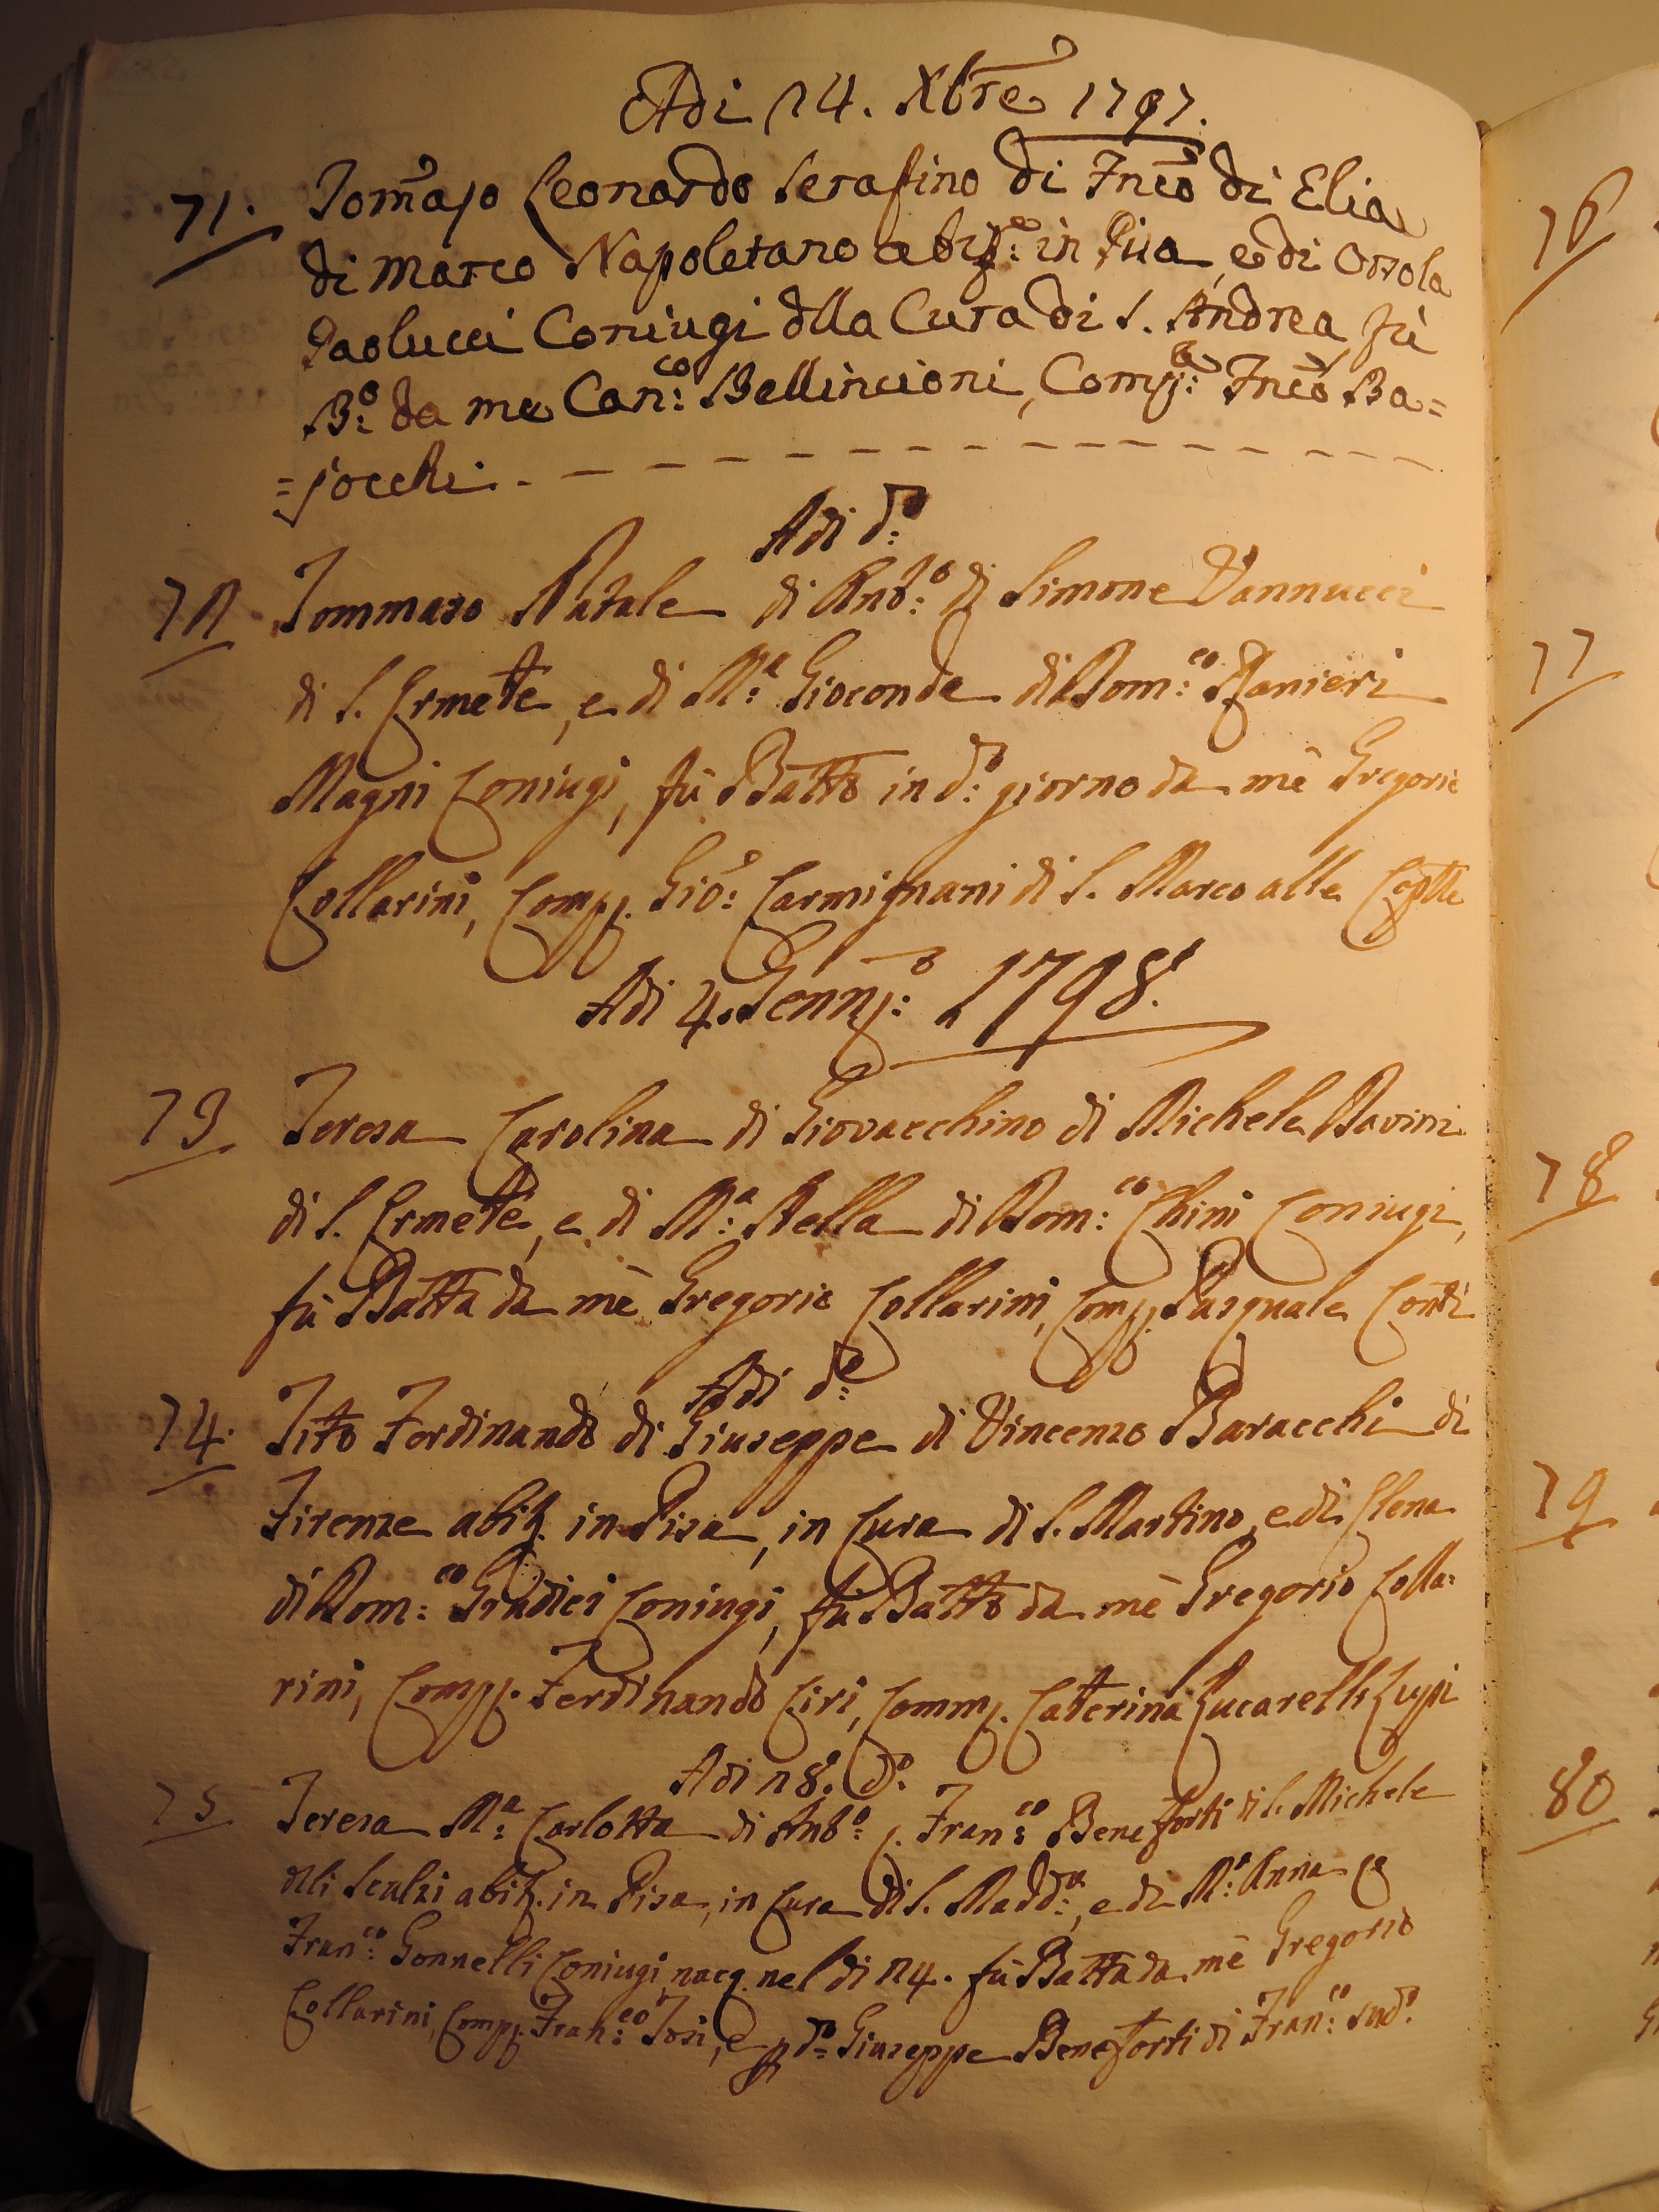 Adi 24. Xbre 1797.
71. Tommaso Leonardo Serafino di Fnco di Elia
di Marco Napoletano abit:e in Pisa, e di Orsola
Paolucci Coniugi dlla Cura di S. Andrea fu
B:o da me Can:co Bellincioni, Comp:e Fnco Ba=
=jocchi.
Adi d:o
72 Tommaso Natale di Ant:o di Simone Vannucci
di S. Ermete, e di M:a Gioconda di Dom:co Ranieri
Magni Coniugi, fù Batto in d:o giorno da mè Gregorio
Collarini, Comp. Gio: Carmignani di S. Marco alle Cappelle
Adi 4. Genn:o 1798.
73 Teresa Carolina di Giovacchino di Michele Bavini
di S. Ermete, e di M:a Stella di Dom:co Chini Coniugi,
fù Batta da mè Gregorio Collarini, Comp. Pasquale Conti
Adi d:o
74. Tito Ferdinando di Giuseppe di Vincenzo Baracchi di
Firenze abit. in Pisa, in Cura di S. Martino, e di Elena
di Dom:co Giudici Coniugi, fù Batto da mè Gregorio Colla=
rini, Comp. Ferdinando Ciri, Comm. Caterina Lucarelli Lupi
Adi 28. d:o
75 Teresa M:a Carlotta di Ant:o q. Fran:co Beneforti di S. Michele
dlli Scalzi abit. in Pisa, in Cura di S. Madd:a, e di M:a Anna q
Fran:co Gonnelli Coniugi, nacq. nel di 24. fù Batta da mè Gregorio
Collarini, Comp. Fran:co Tosi, e p d:o Giuseppe Beneforti di Fran:co sud:o
76
77
78
79
80